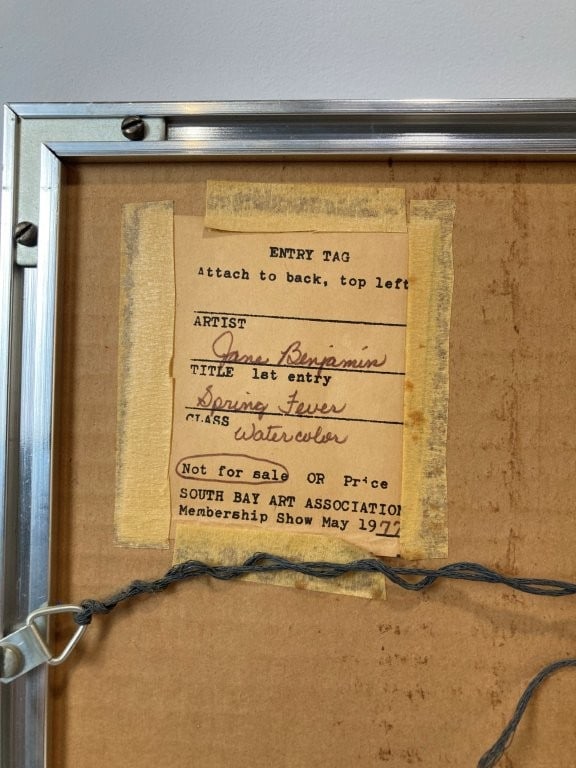 ENTRY TAG
Attach to back, top left
ARTIST
Jane Benjamin
TITLE 1st entry
Spring Fever
CLASS
Watercolor
Not for sale OR Price
SOUTH BAY ART ASSOCIATION
Membership Show May 1977